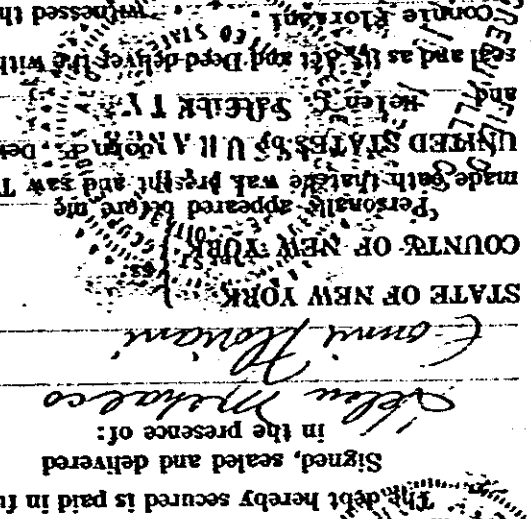 The debt hereby secured is paid in fu
Signed, sealed and delivered
in the presence of:
Helen Mihalco
Connie Floriani
STATE OF NEW YORK
COUNTY OF NEW YORK } ss.
Personally appeared before me
made oath that he was present and saw T
UNITED STATES by
and Helen C.
seal and as its Act and Deed deliver the with
Connie Floriani witnessed th